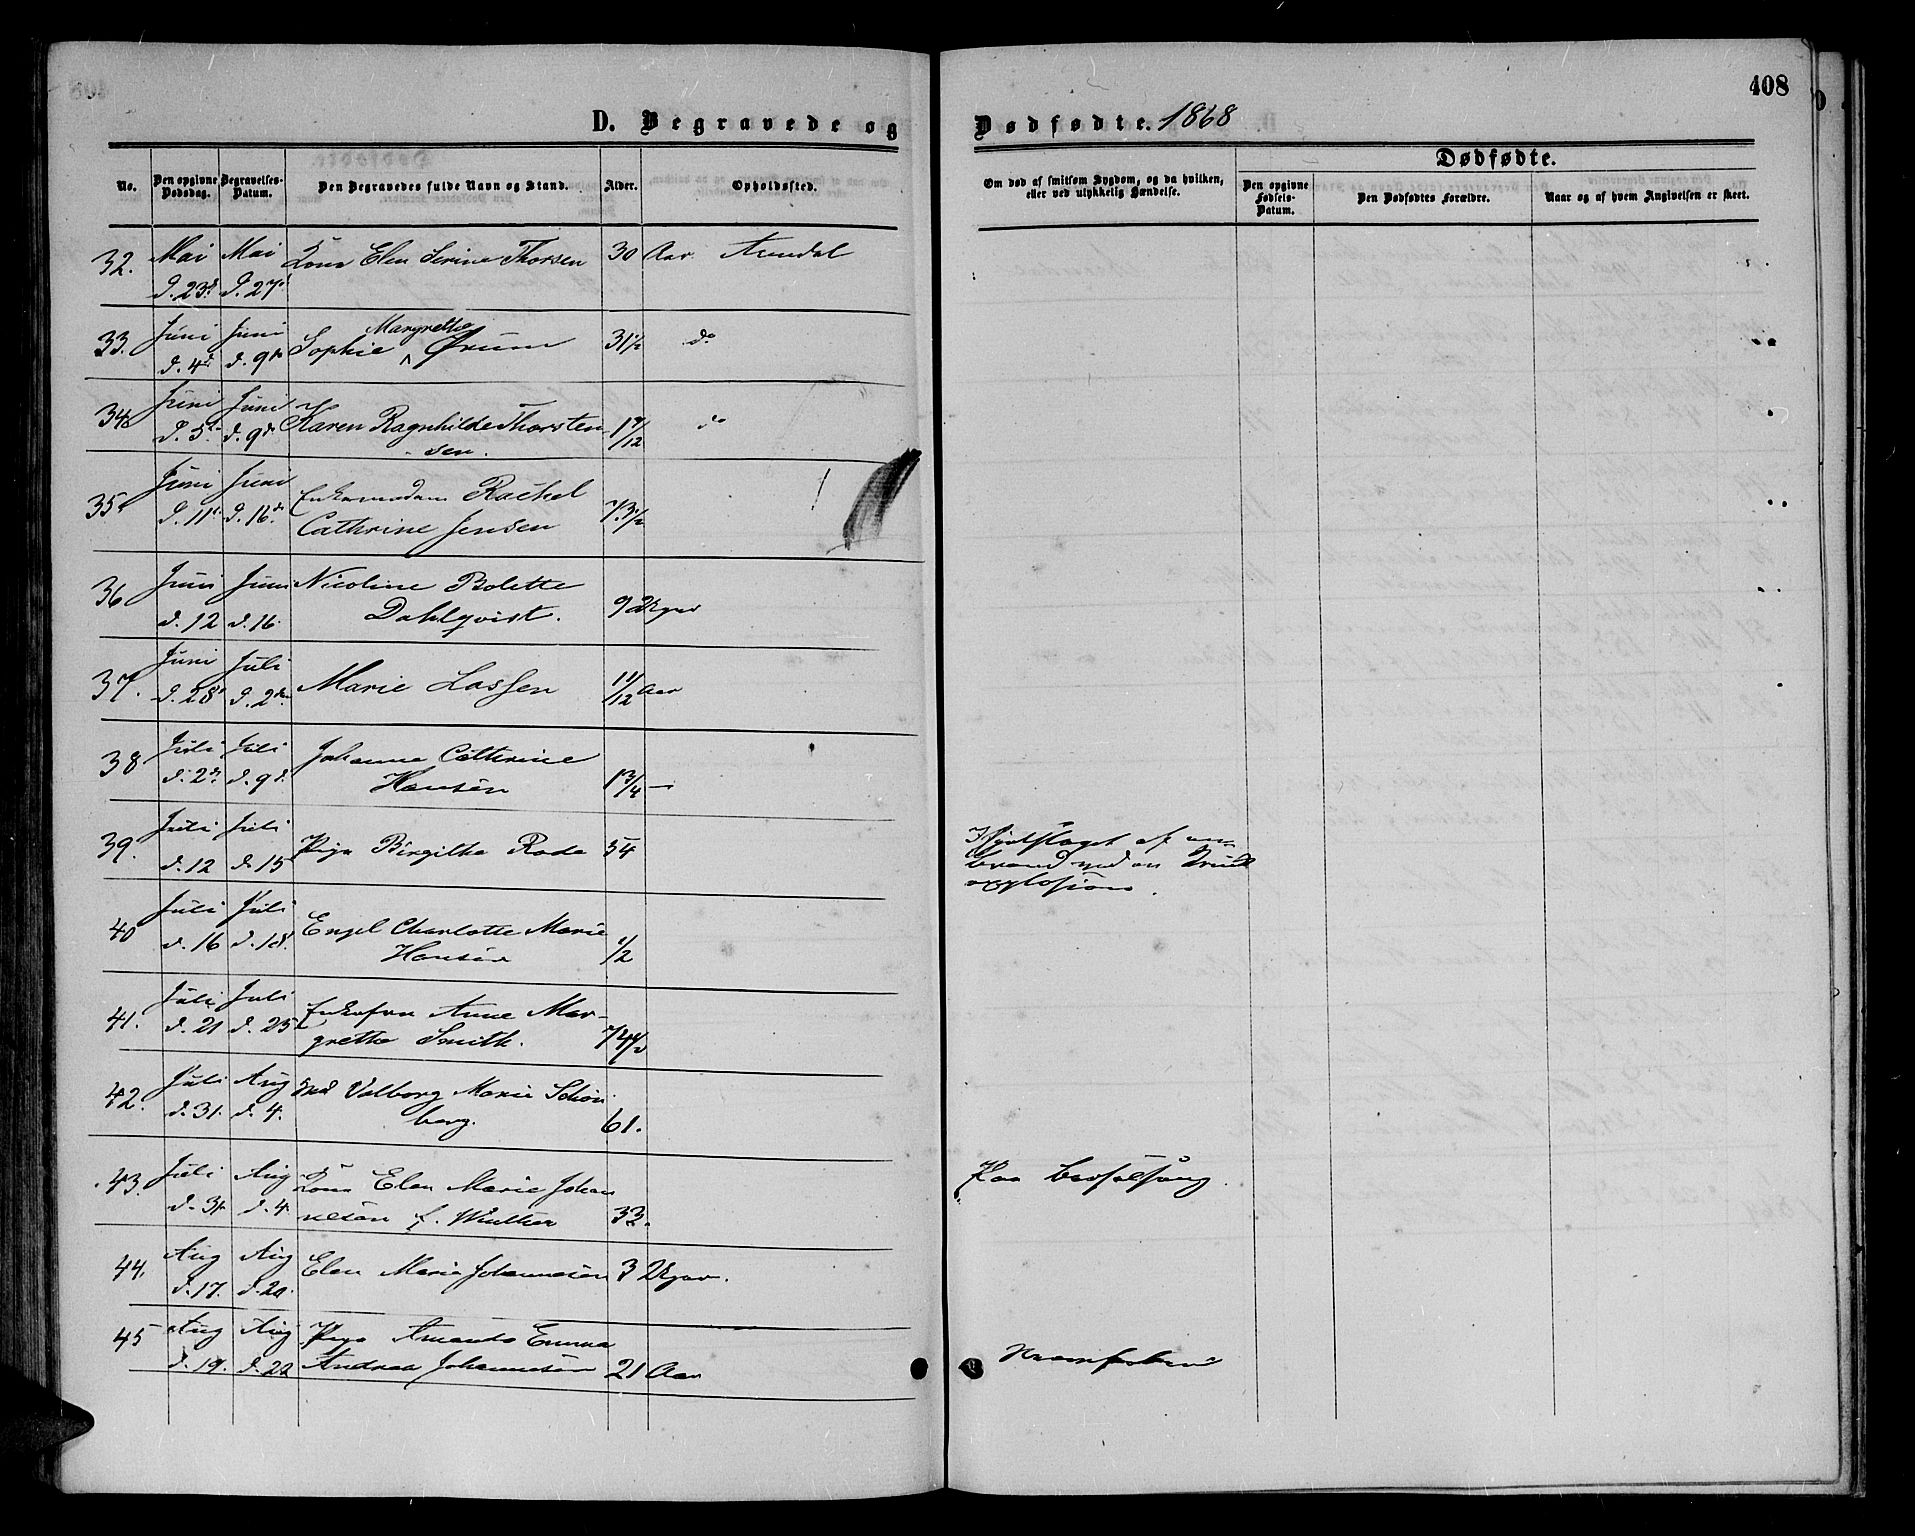 408
D. Begravede og Dødfødte. 1868
No.
Den opgivne Dødsdag.
Begravelses-Datum.
Den Begravedes fulde Navn og Stand.
Alder.
Opholdssted.
Om død af smitsom Sygdom, og da hvilken, eller ved ulykkelig Hændelse.
Dødfødte.
Den opgivne Fødsels-Datum.
Den Dødfødtes Forældre.
Naar og af hvem Angivelsen er skeet.
32. Mai Mai Kone Elen Serine Thorsen 30 Aar Arendal
d. 23d d. 27d
33. Juni Juni Sophie Margrethe Ørum 31½ do
d. 4d d. 9de
34 Juni Juni Karen Ragnhilde Thorsten- 1 9/12 do
d. 5te d. 9d. sen.
35 Juni Juni Enkemadam Rachel
d. 11te d. 16d. Cathrine Jensen 73½
36 Juni Juni Nicoline Bolette
d. 12 d. 16. Dahlqvist. 9 Uger
37. Juni Juli Marie Lassen 11/12 Aar
d. 28 d. 2den
38 Juli Juli Johanne Cathrine
d. 2d. d. 9d. Hansen 1 3/4 —
39. Juli Juli Pige Birgithe Rode 54
d. 12 d. 15
Ihjelslaget af en
brand ved en Krud
explosion.
40 Juli Juli Engel Charlotte Marie
d. 16 d. 18d. Hansen ½
41. Juli Juli Enkefru Anne Mar-
d. 21 d. 25 grethe Smith. 74½
42. Juli Aug Valborg Marie Schøn
d. 31. d. 4. berg. 61.
43. Juli Aug Kone Elen Marie Johan
d. 31. d. 4. nesen f. Winther 33.
Paa Barselseng.
44. Aug Aug Elen Marie Johannesen 3 Uger.
d. 17. d. 20.
45 Aug Aug Pige Amanda Emma
d. 19. d. 22 Andrea Johannesen 21 Aar